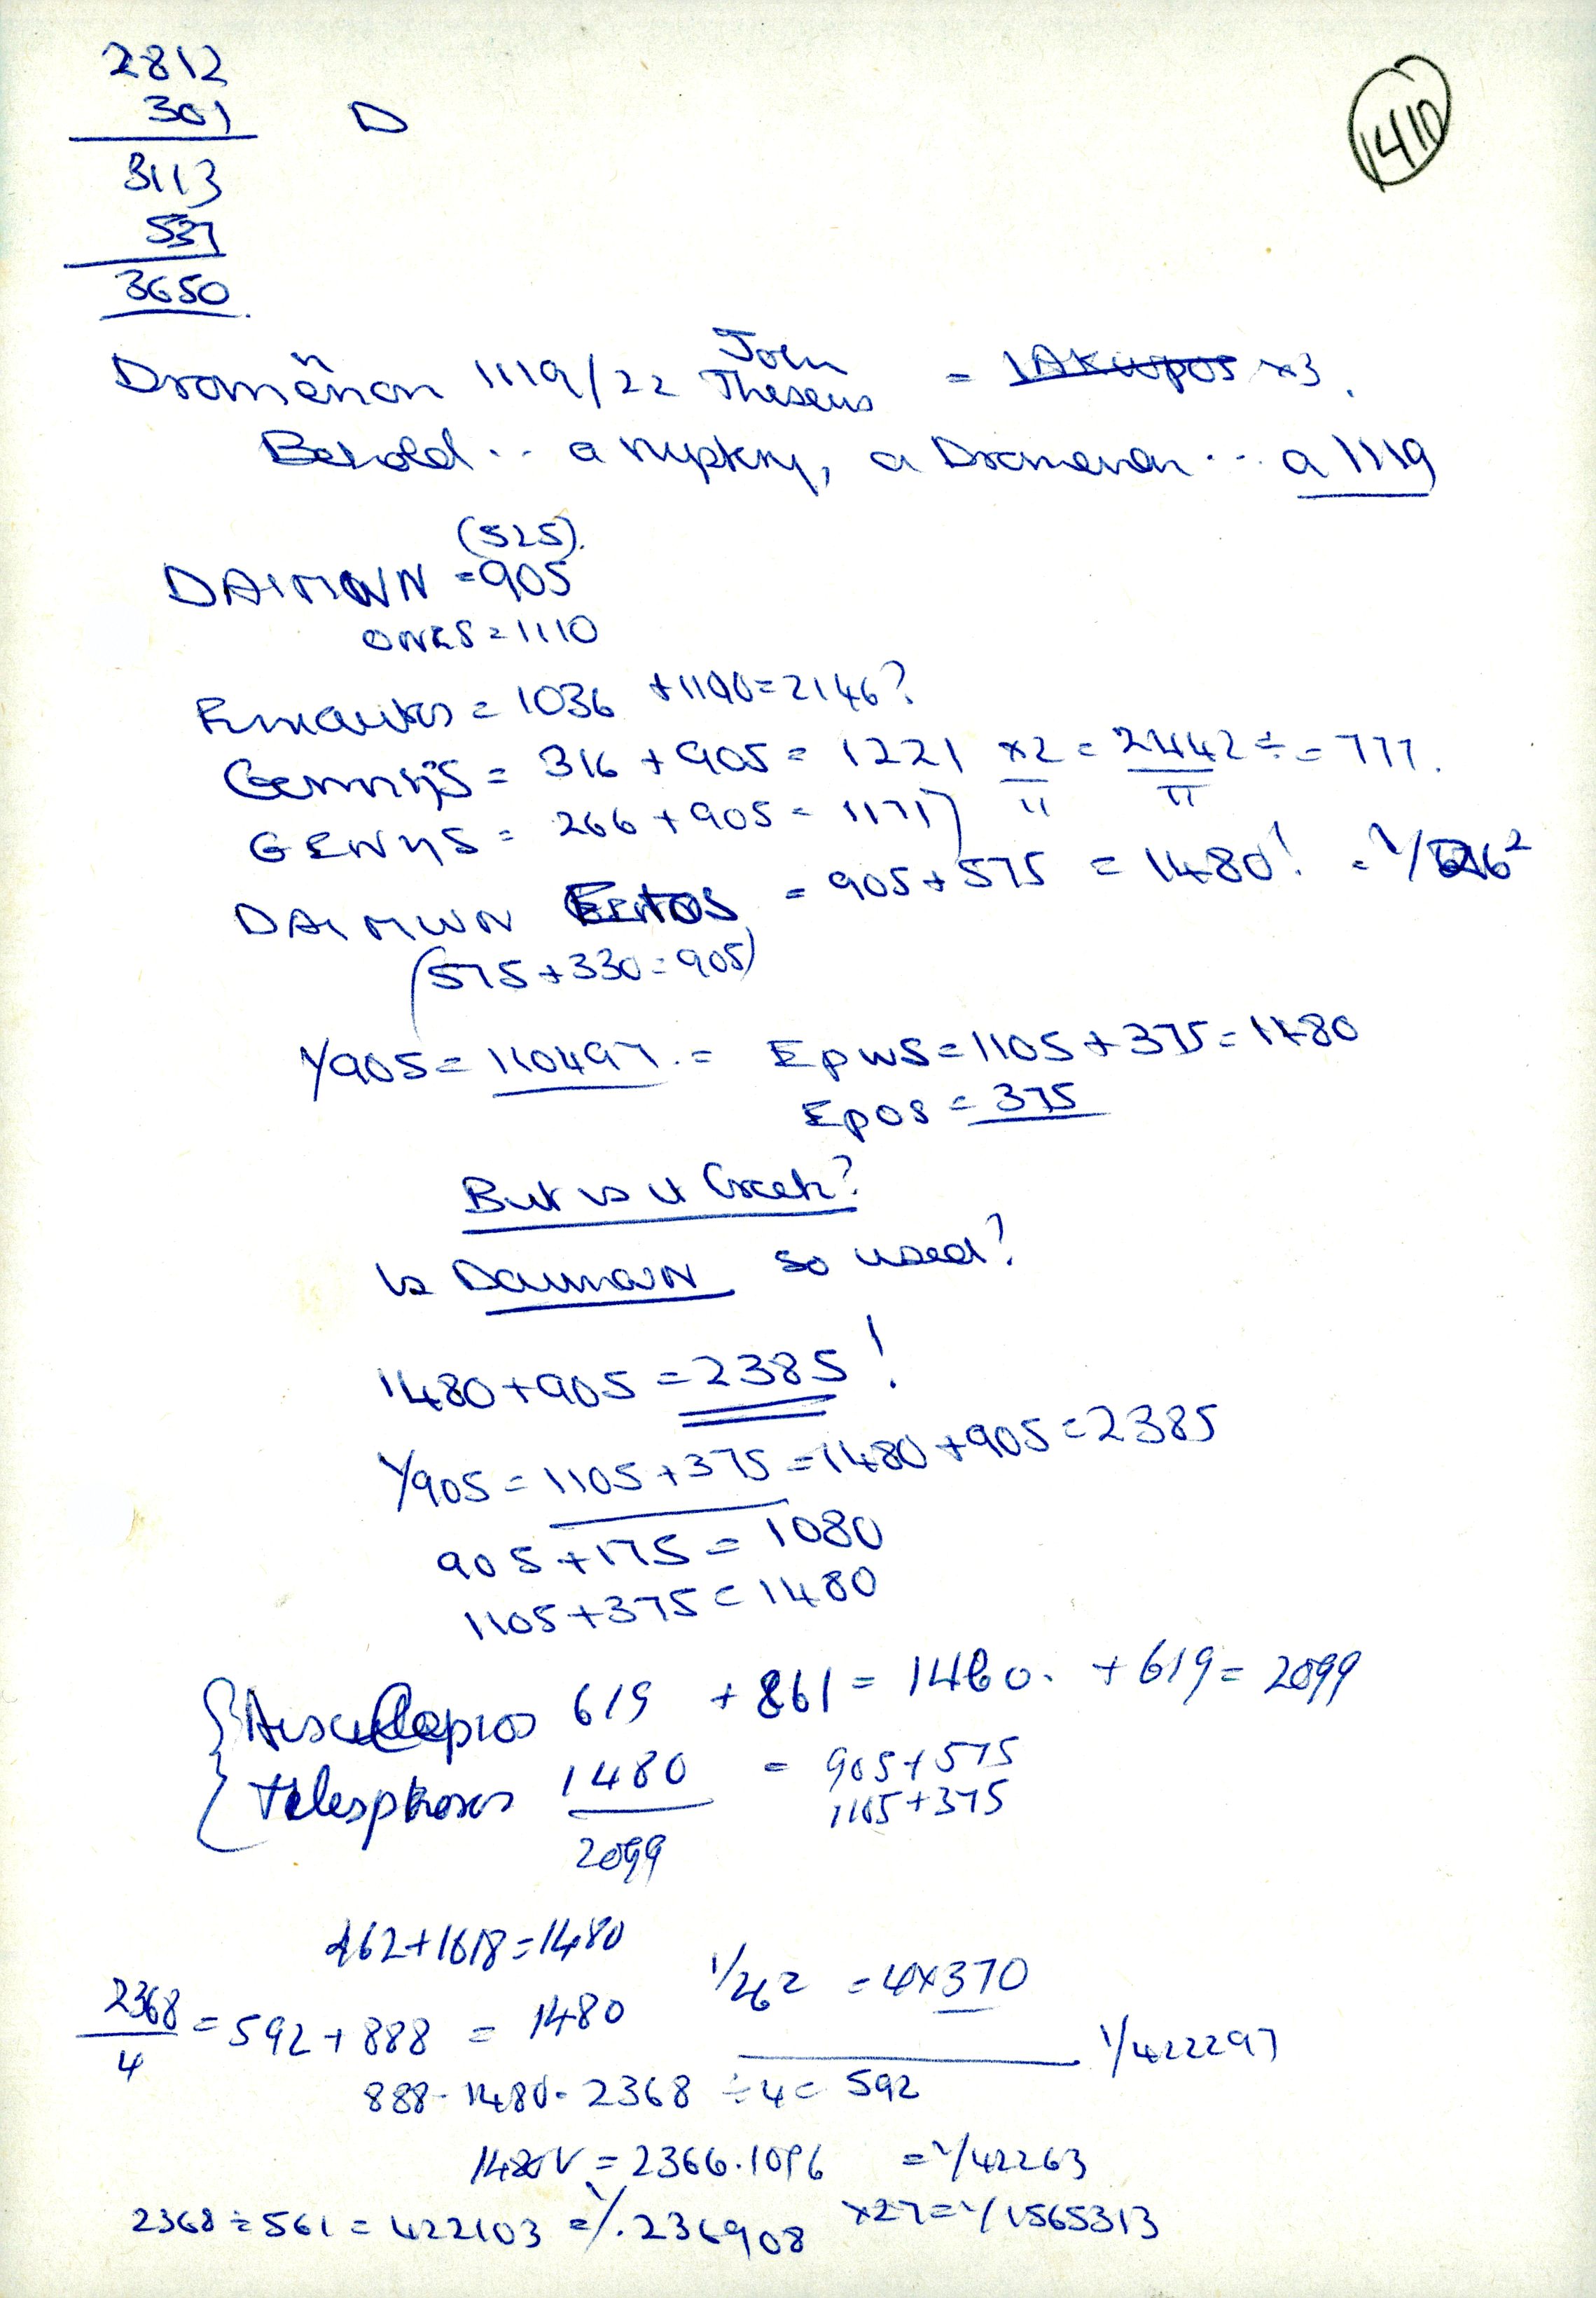 2812
301 D
3113
537
3650
1410
Dromenon 1119/22 John Theseus = IAKWPOS x3.
Behold .. a mystery, a Dromenon ... a 1119
(525).
DAIMWN = 905
ONES = 1110
= 1036 + 1110 = 2146?
= 316 + 905 = 1221 x2 = 2442 ÷ = 777.
π π
GENNYS = 266 + 905 = 1171)
DAIMWN = 905 + 575 = 1480!
(575 + 330 = 905)
1/905 = 110497. = EpwS = 1105 + 375 = 1480
Epos = 375
But is it Greek?
Is DaimwN so used?
1480 + 905 = 2385!
1/905 = 1105 + 375 = 1480 + 905 = 2385
905 + 175 = 1080
1105 + 375 = 1480
{ Aisculapios 619 + 861 = 1480. + 619 = 2099
{ telesphoros 1480 = 905 + 575
1105 + 375
2099
+ 1618 = 1480
1/262 = 4x370
2368/4 = 592 + 888 = 1480
1/422297
888 - 1480 - 2368 ÷ 4 = 592
= 2366.1096 = 1/42263
2368 ÷ 561 = 422103 = 1/.236908 x27 = 1/1565313